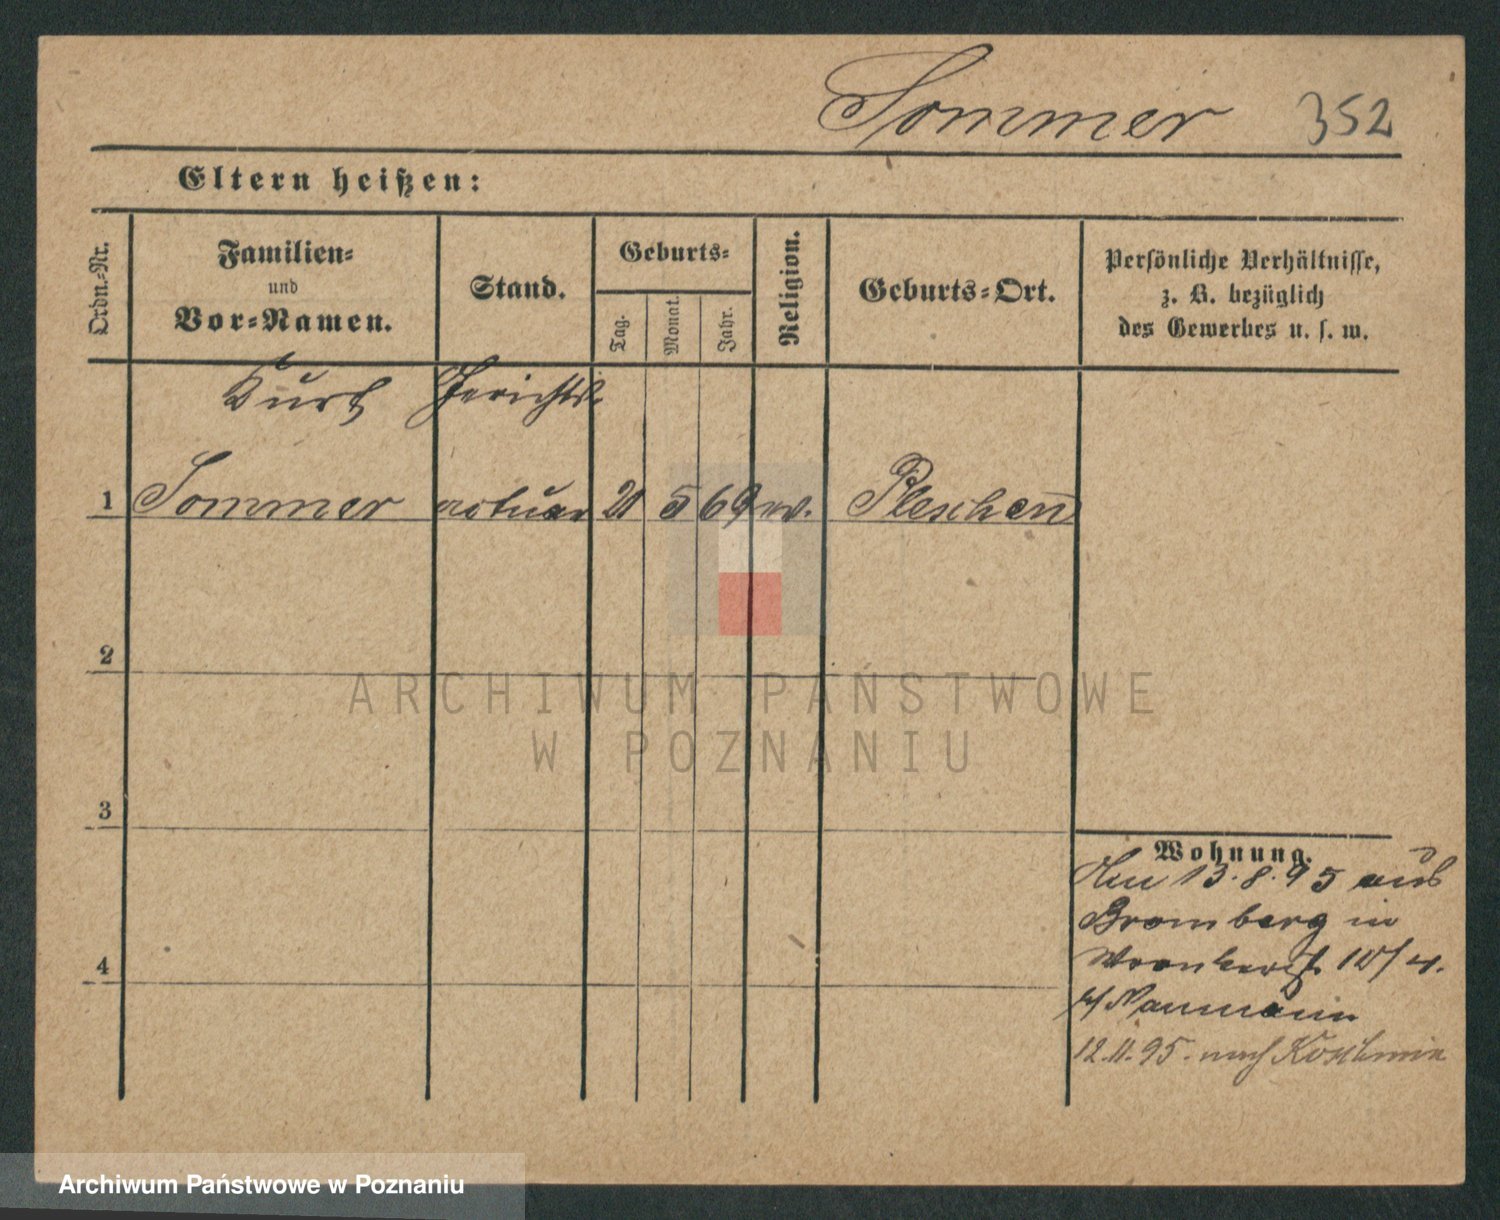 Sommer 352
Eltern heißen:
Ordn.-Nr.
Familien-
und
Vor-Namen.
Stand.
Geburts-
Tag.
Monat.
Jahr.
Religion.
Geburts-Ort.
Persönliche Verhältnisse,
z. B. bezüglich
des Gewerbes u. s. w.
Kurt Gerichts-
1 Sommer actuar 21 5 69 ev. Pleschen
2
ARCHIWUM PAŃSTWOWE
W POZNANIU
3
Wohnung.
13.8.95 aus
Bromberg in
4
Naumann
12.11.95. nach Koschmin
Archiwum Państwowe w Poznaniu